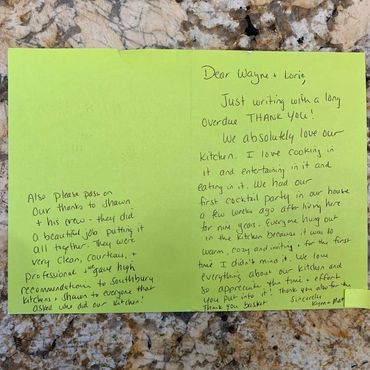 Dear Wayne + Lorie,
Just writing with a long
overdue THANK YOU!
We absolutely love our
kitchen. I love cooking in
it and entertaining in it and
eating in it. We had our
first cocktail party in our house
a few weeks ago after living here
for nine years. Everyone hung out
in the kitchen because it was so
warm, cozy and inviting + for the first
time I didn't mind it. We love
everything about our kitchen and
so appreciate the time + effort
you put into it! Thank you also for the
Thank you basket
Sincerely,
Also please pass on
our thanks to Shawn
+ his crew - they did
a beautiful job putting it
all together. They were
very clean, courteous, +
professional + gave high
recommendation to Southbury
Kitchens + Shawn to everyone that
asked who did our kitchen!